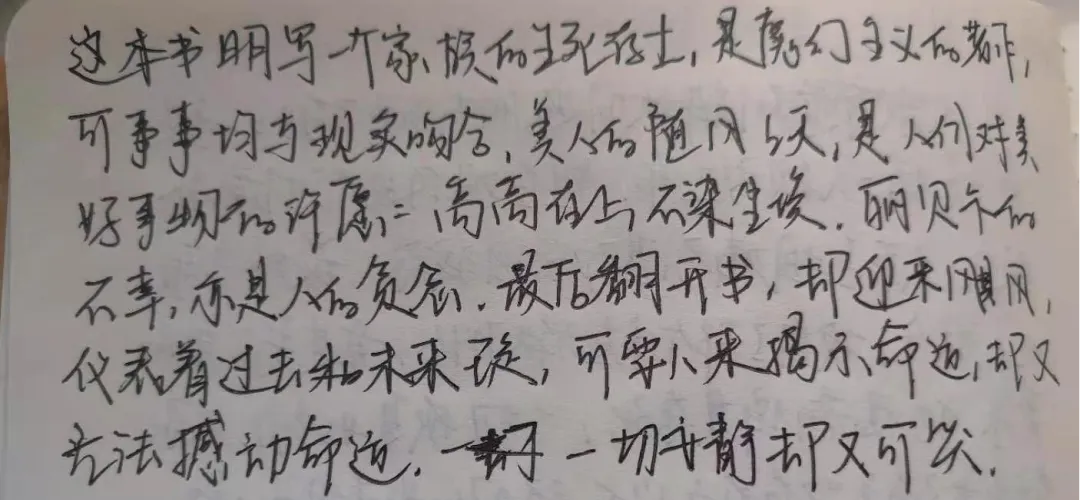 这本书明写一个家族的生死存亡,是魔幻主义的著作,
可事事均与现实吻合,美人的随风上天,是人们对美
好事物的许愿:高高在上,不染尘埃.丽贝卡的
不幸,亦是人的贪念.最后翻开书,却迎来飓风,
代表着过去和未来,可要人来揭示命运,却又
无法撼动命运.一切平静却又可笑.